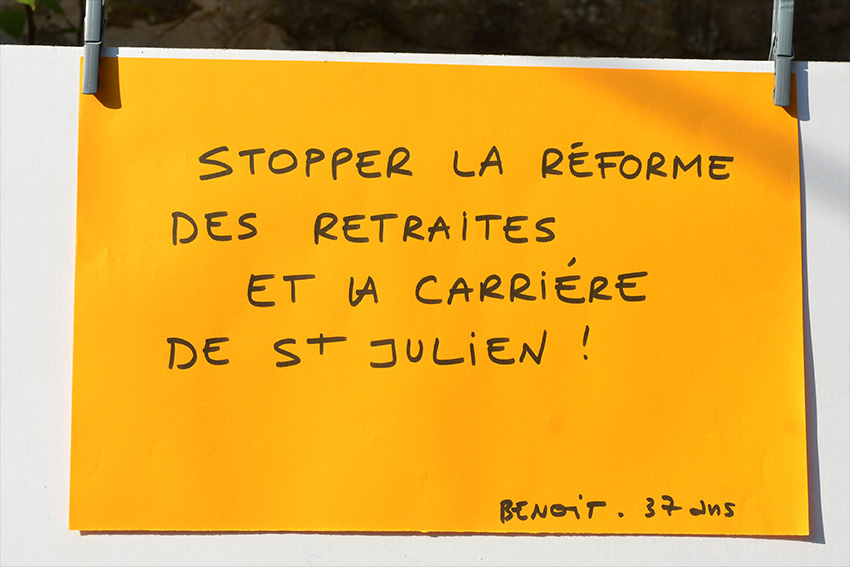 STOPPER LA RÉFORME
DES RETRAITES
ET LA CARRIÉRE
DE St JULIEN !
BENOIT. 37 ans